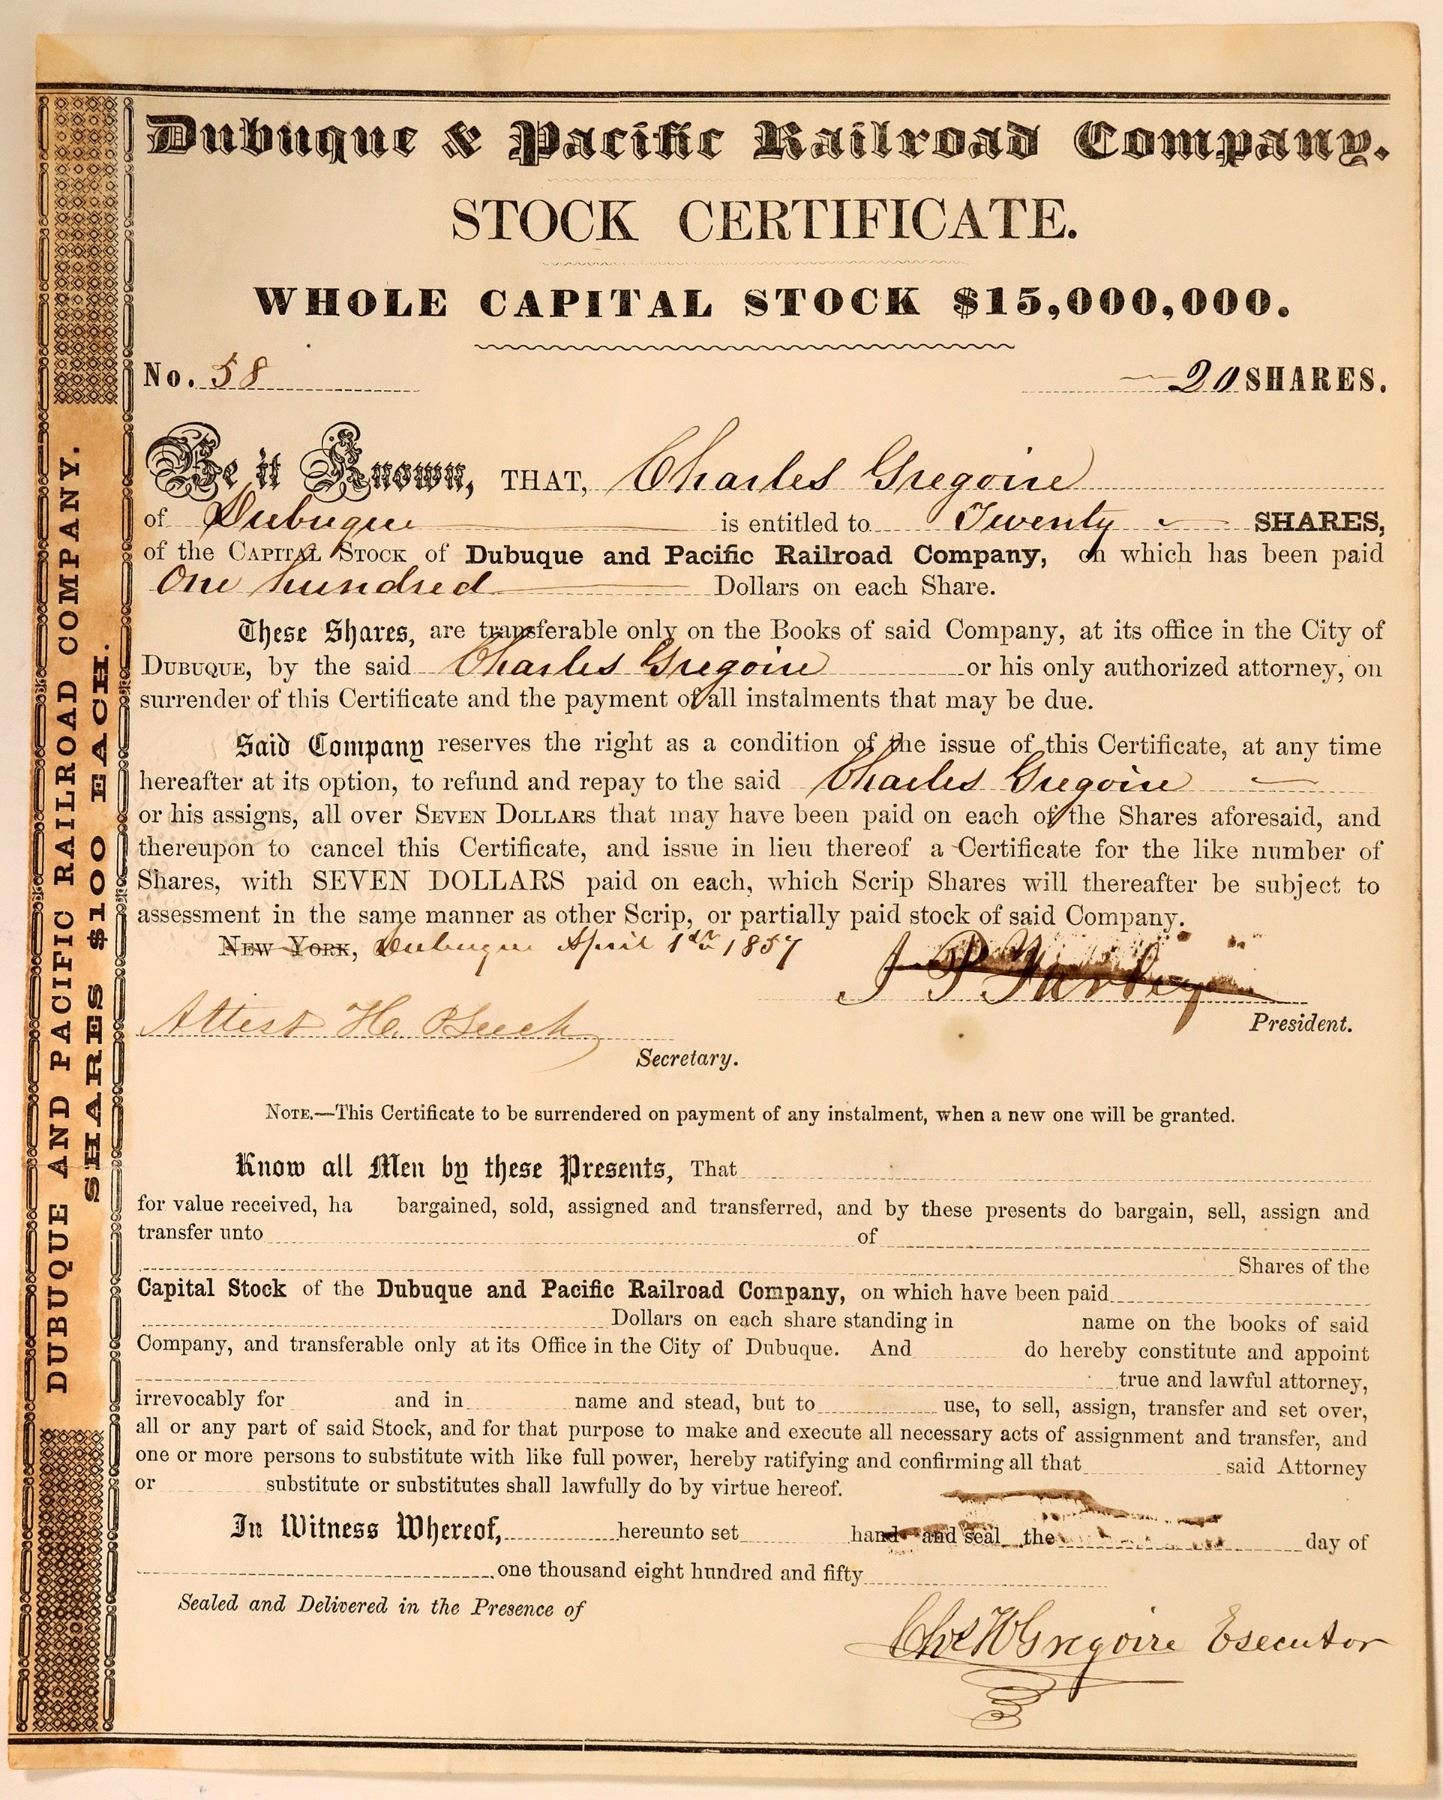 Dubuque & Pacific Railroad Company.
STOCK CERTIFICATE.
WHOLE CAPITAL STOCK $15,000,000.
No. 58 20 SHARES.
Be it Known, THAT, Charles Gregoire
of Dubuque is entitled to Twenty SHARES,
of the CAPITAL STOCK of Dubuque and Pacific Railroad Company, on which has been paid
One hundred Dollars on each Share.
These Shares, are transferable only on the Books of said Company, at its office in the City of
DUBUQUE, by the said Charles Gregoire or his only authorized attorney, on
surrender of this Certificate and the payment of all instalments that may be due.
Said Company reserves the right as a condition of the issue of this Certificate, at any time
hereafter at its option, to refund and repay to the said Charles Gregoire
or his assigns, all over SEVEN DOLLARS that may have been paid on each of the Shares aforesaid, and
thereupon to cancel this Certificate, and issue in lieu thereof a Certificate for the like number of
Shares, with SEVEN DOLLARS paid on each, which Scrip Shares will thereafter be subject to
assessment in the same manner as other Scrip, or partially paid stock of said Company.
NEW YORK, Dubuque April 1st 1857
J P Farley
President.
Attest H. Beech
Secretary.
NOTE.—This Certificate to be surrendered on payment of any instalment, when a new one will be granted.
Know all Men by these Presents, That
for value received, ha bargained, sold, assigned and transferred, and by these presents do bargain, sell, assign and
transfer unto of
Shares of the
Capital Stock of the Dubuque and Pacific Railroad Company, on which have been paid
Dollars on each share standing in name on the books of said
Company, and transferable only at its Office in the City of Dubuque. And do hereby constitute and appoint
true and lawful attorney,
irrevocably for and in name and stead, but to use, to sell, assign, transfer and set over,
all or any part of said Stock, and for that purpose to make and execute all necessary acts of assignment and transfer, and
one or more persons to substitute with like full power, hereby ratifying and confirming all that said Attorney
or substitute or substitutes shall lawfully do by virtue hereof.
In Witness Whereof, hereunto set hand and seal the day of
one thousand eight hundred and fifty
Sealed and Delivered in the Presence of
Chs H Gregoire Esecutor
DUBUQUE AND PACIFIC RAILROAD COMPANY.
SHARES $100 EACH.